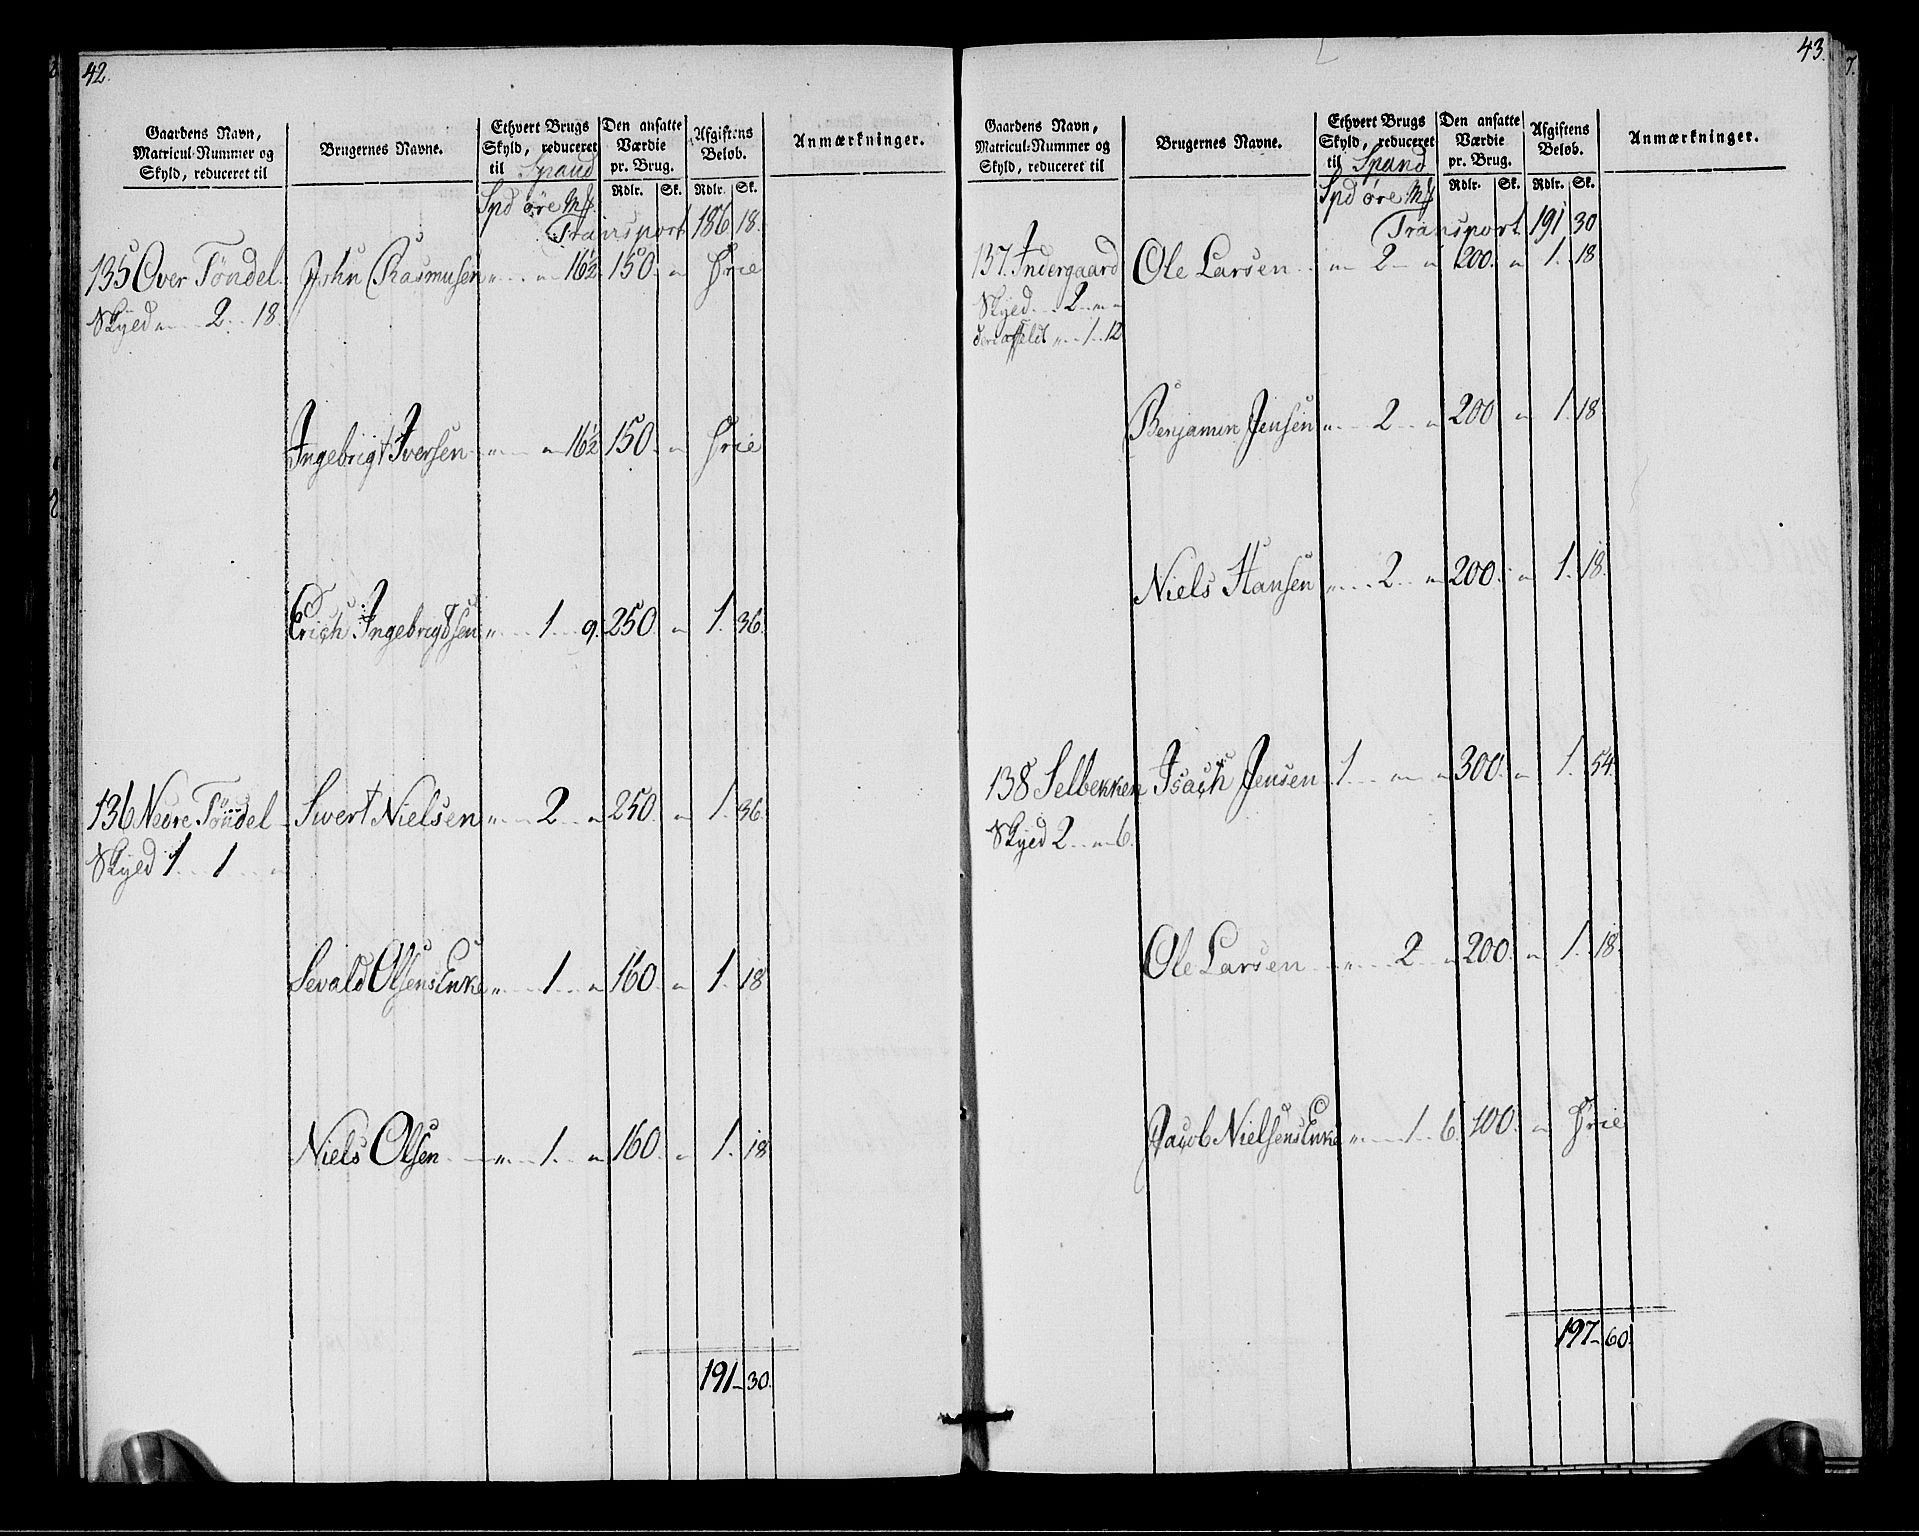 42.
Gaardens Navn, Matricul-Nummer og Skyld, reduceret til
Brugernes Navne.
Ethvert Brugs Skyld, reduceret til Spand
Den ansatte Værdie pr. Brug.
Afgiftens Beløb.
Anmærkninger.
Rdlr. Sk. Rdlr. Sk.
Spd öre M#
Transport 186 18.
135 Over Töndel. John Rasmusen „ „ 16½ 150. „ Frie
Skyed „ 2 18.
Ingebrigt Iversen „ „ 16½ 150. „ Frie
Erich Ingebrigtsen „ 1 9. 250. „ 1. 36.
136 Nedre Töndel Sivert Nielsen „ 2 „ 250. „ 1. 36.
Skyed 1 1 „
Sevald Olsens Enke „ 1 „ 160. „ 1. 18
Niels Olsen „ 1 „ 160. „ 1. 18
191 30.
43.
Gaardens Navn, Matricul-Nummer og Skyld, reduceret til
Brugernes Navne.
Ethvert Brugs Skyld, reduceret til Spand
Den ansatte Værdie pr. Brug.
Afgiftens Beløb.
Anmærkninger.
Rdlr. Sk. Rdlr. Sk.
Spd öre M#
Transport 191 30
137. Indergaard Ole Larsen „ 2 „ 200. „ 1. 18
Skyed 2 „ „
„ 1 12
Benjamin Jensen „ 2 „ 200 „ 1. 18
Niels Hansen „ 2 „ 200. „ 1. 18.
138 Selbekken Isach Jensen 1 „ „ 300. „ 1. 54.
Skyed 2 „ 6.
Ole Larsen „ 2 „ 200. „ 1. 18.
Jacob Nielsens Enke „ 1 6. 100. „ Frie
197 60.